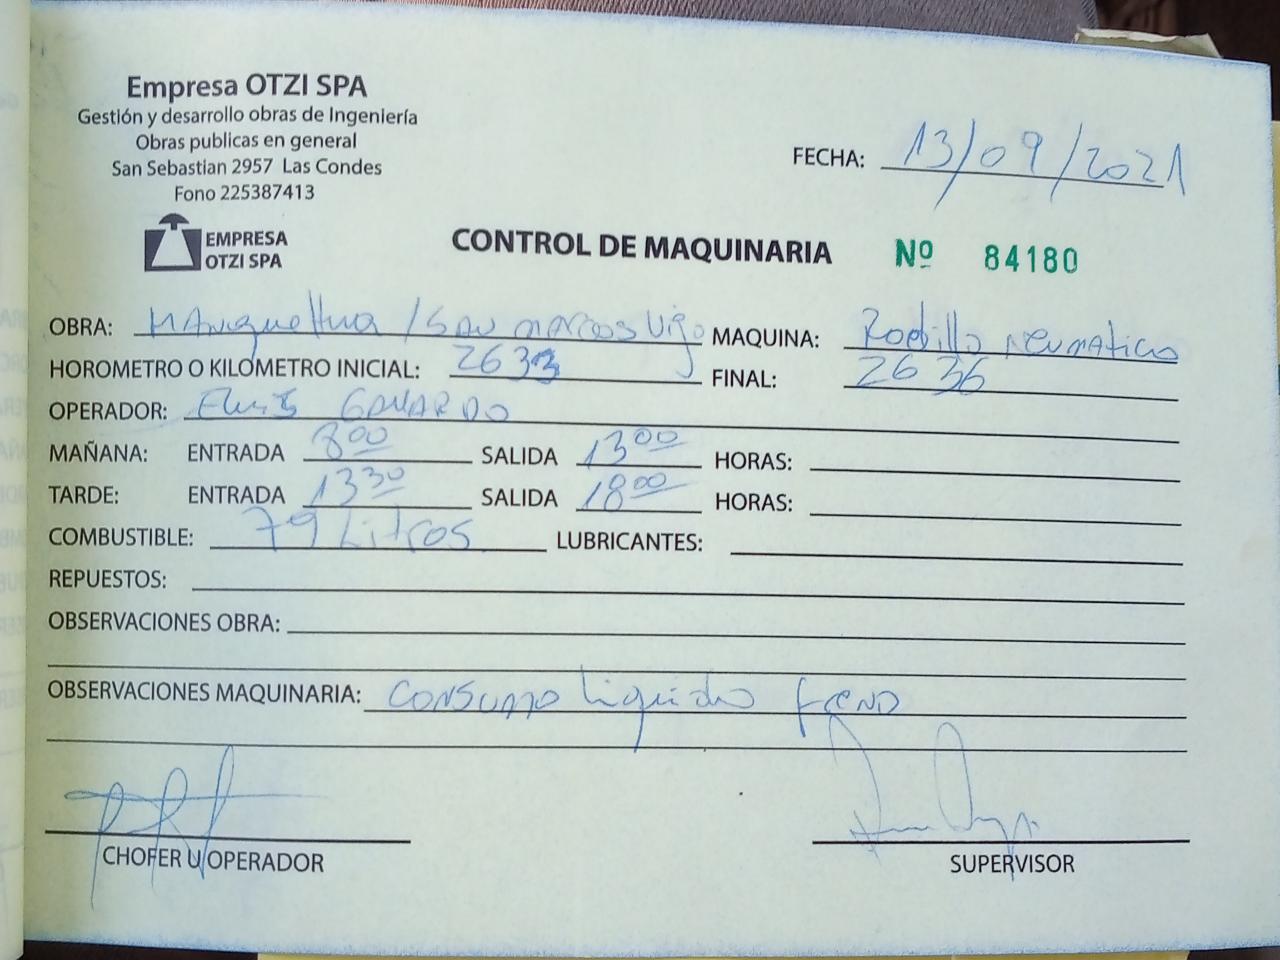 Empresa OTZI SPA
Gestión y desarrollo obras de Ingeniería
Obras publicas en general
San Sebastian 2957 Las Condes
Fono 225387413
FECHA: 13/09/2021
EMPRESA
OTZI SPA
CONTROL DE MAQUINARIA Nº 84180
OBRA: / San Marcos MAQUINA: Rodillo Neumatico
HOROMETRO O KILOMETRO INICIAL: 2633 FINAL: 2636
OPERADOR:
MAÑANA: ENTRADA 800 SALIDA 1300 HORAS:
TARDE: ENTRADA 1330 SALIDA 1800 HORAS:
COMBUSTIBLE: 79 Litros LUBRICANTES:
REPUESTOS:
OBSERVACIONES OBRA:
OBSERVACIONES MAQUINARIA: Consumo liquido
CHOFER U OPERADOR
SUPERVISOR